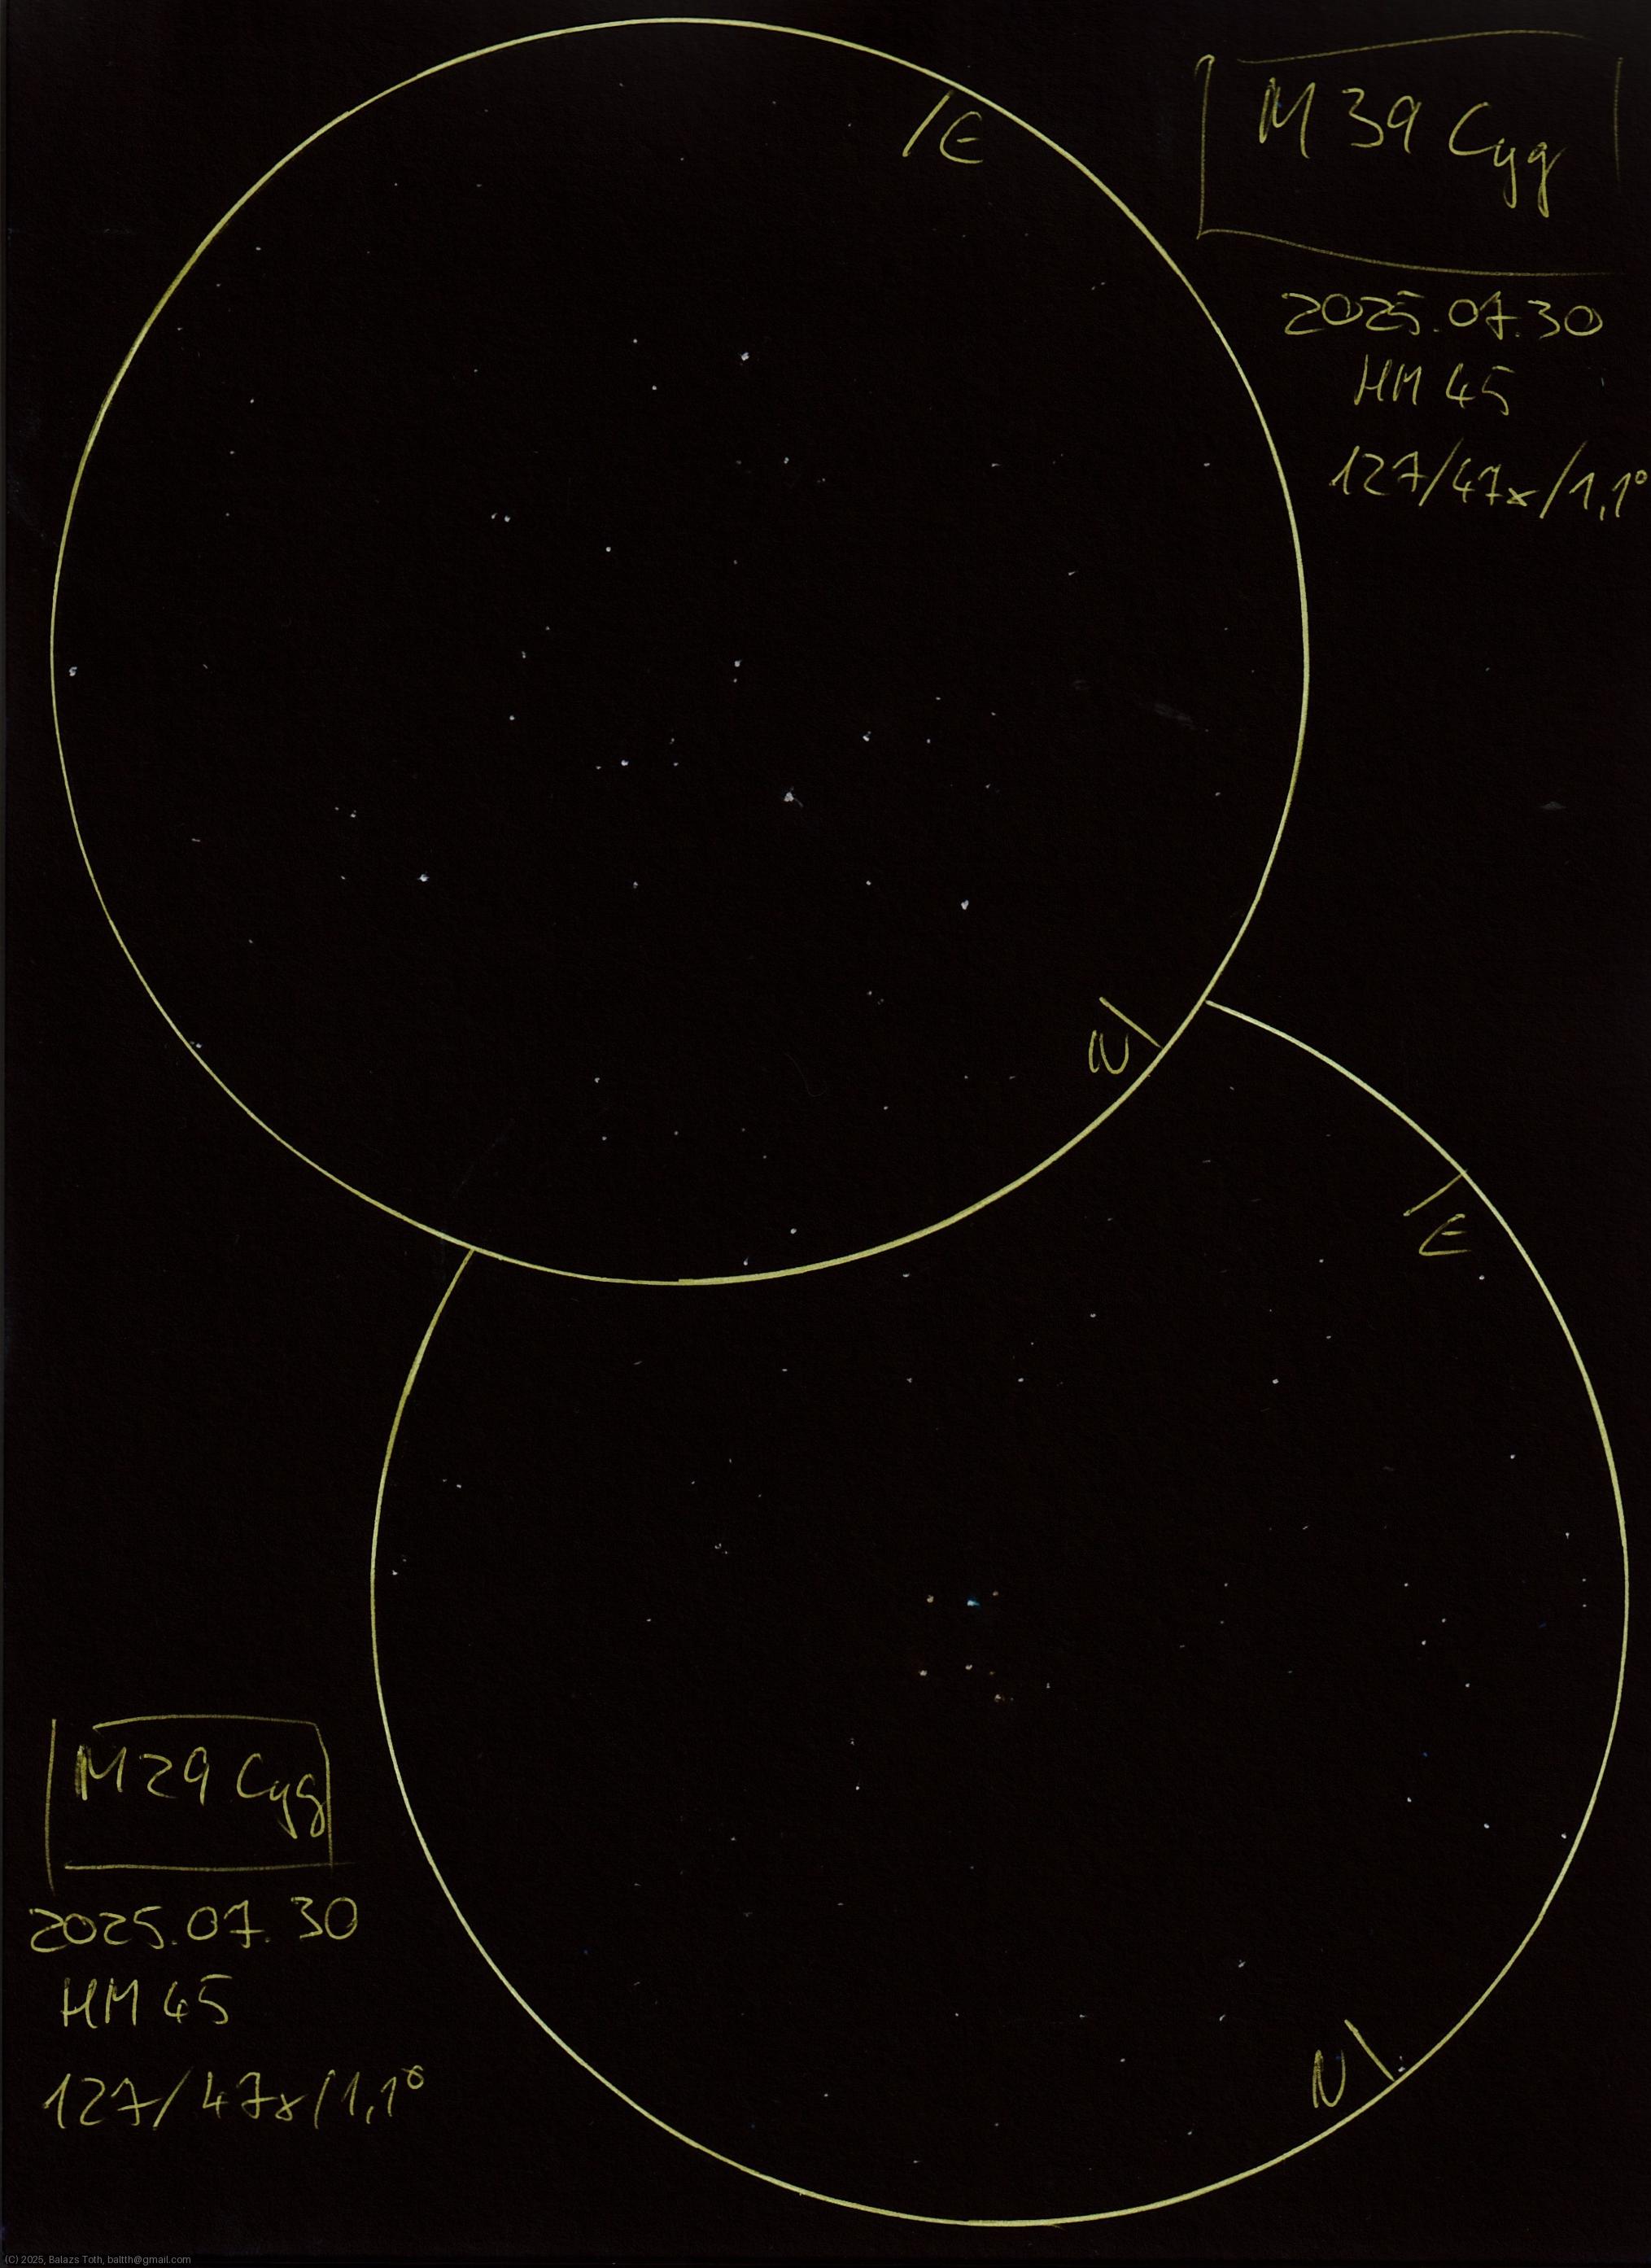 E
M 39 Cyg
2025.07.30
HM 45
127/47x/1,1°
N
E
M 29 Cyg
2025.07.30
HM 45
127/47x/1,1°
N
(C) 2025, Balazs Toth, baltth@gmail.com